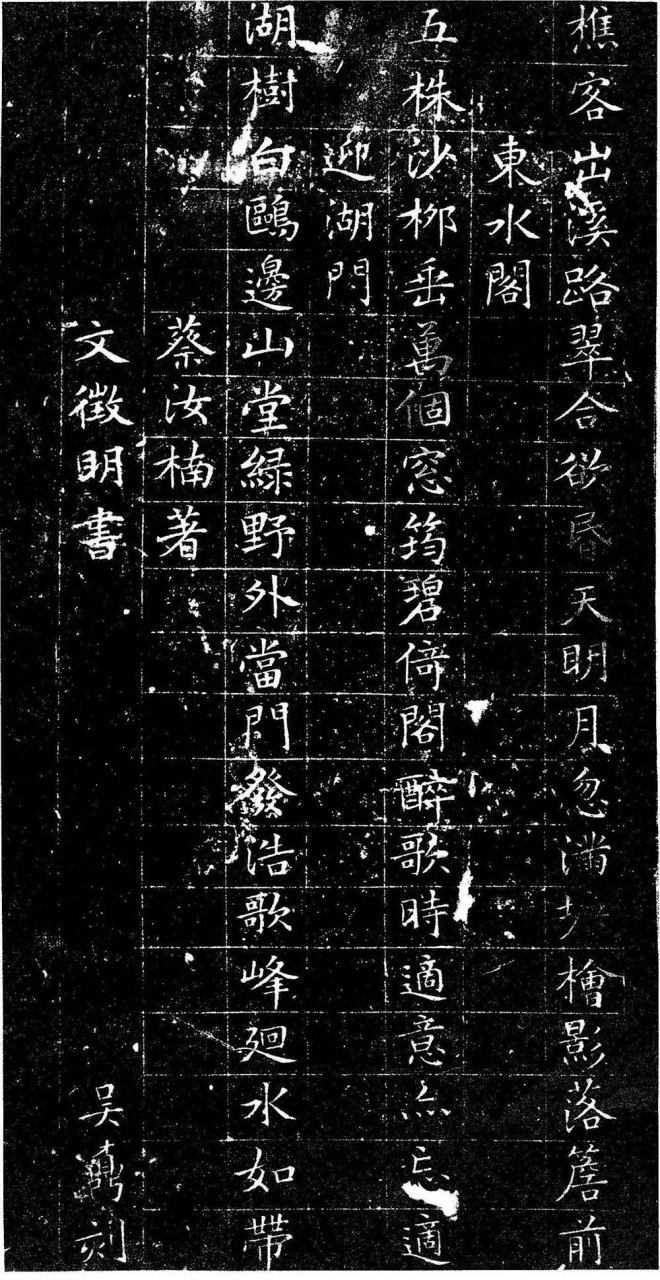 樵客出溪路翠合欲昏天明月忽滿檜影落簷前
東水閣
五株沙柳垂萬個窓筠碧倚閣醉歌時適意亦忘適
迎湖門
湖樹白鷗邊山堂緑野外當門發浩歌峰廻水如帶
蔡汝楠著
文徵明書
吴鼒刻